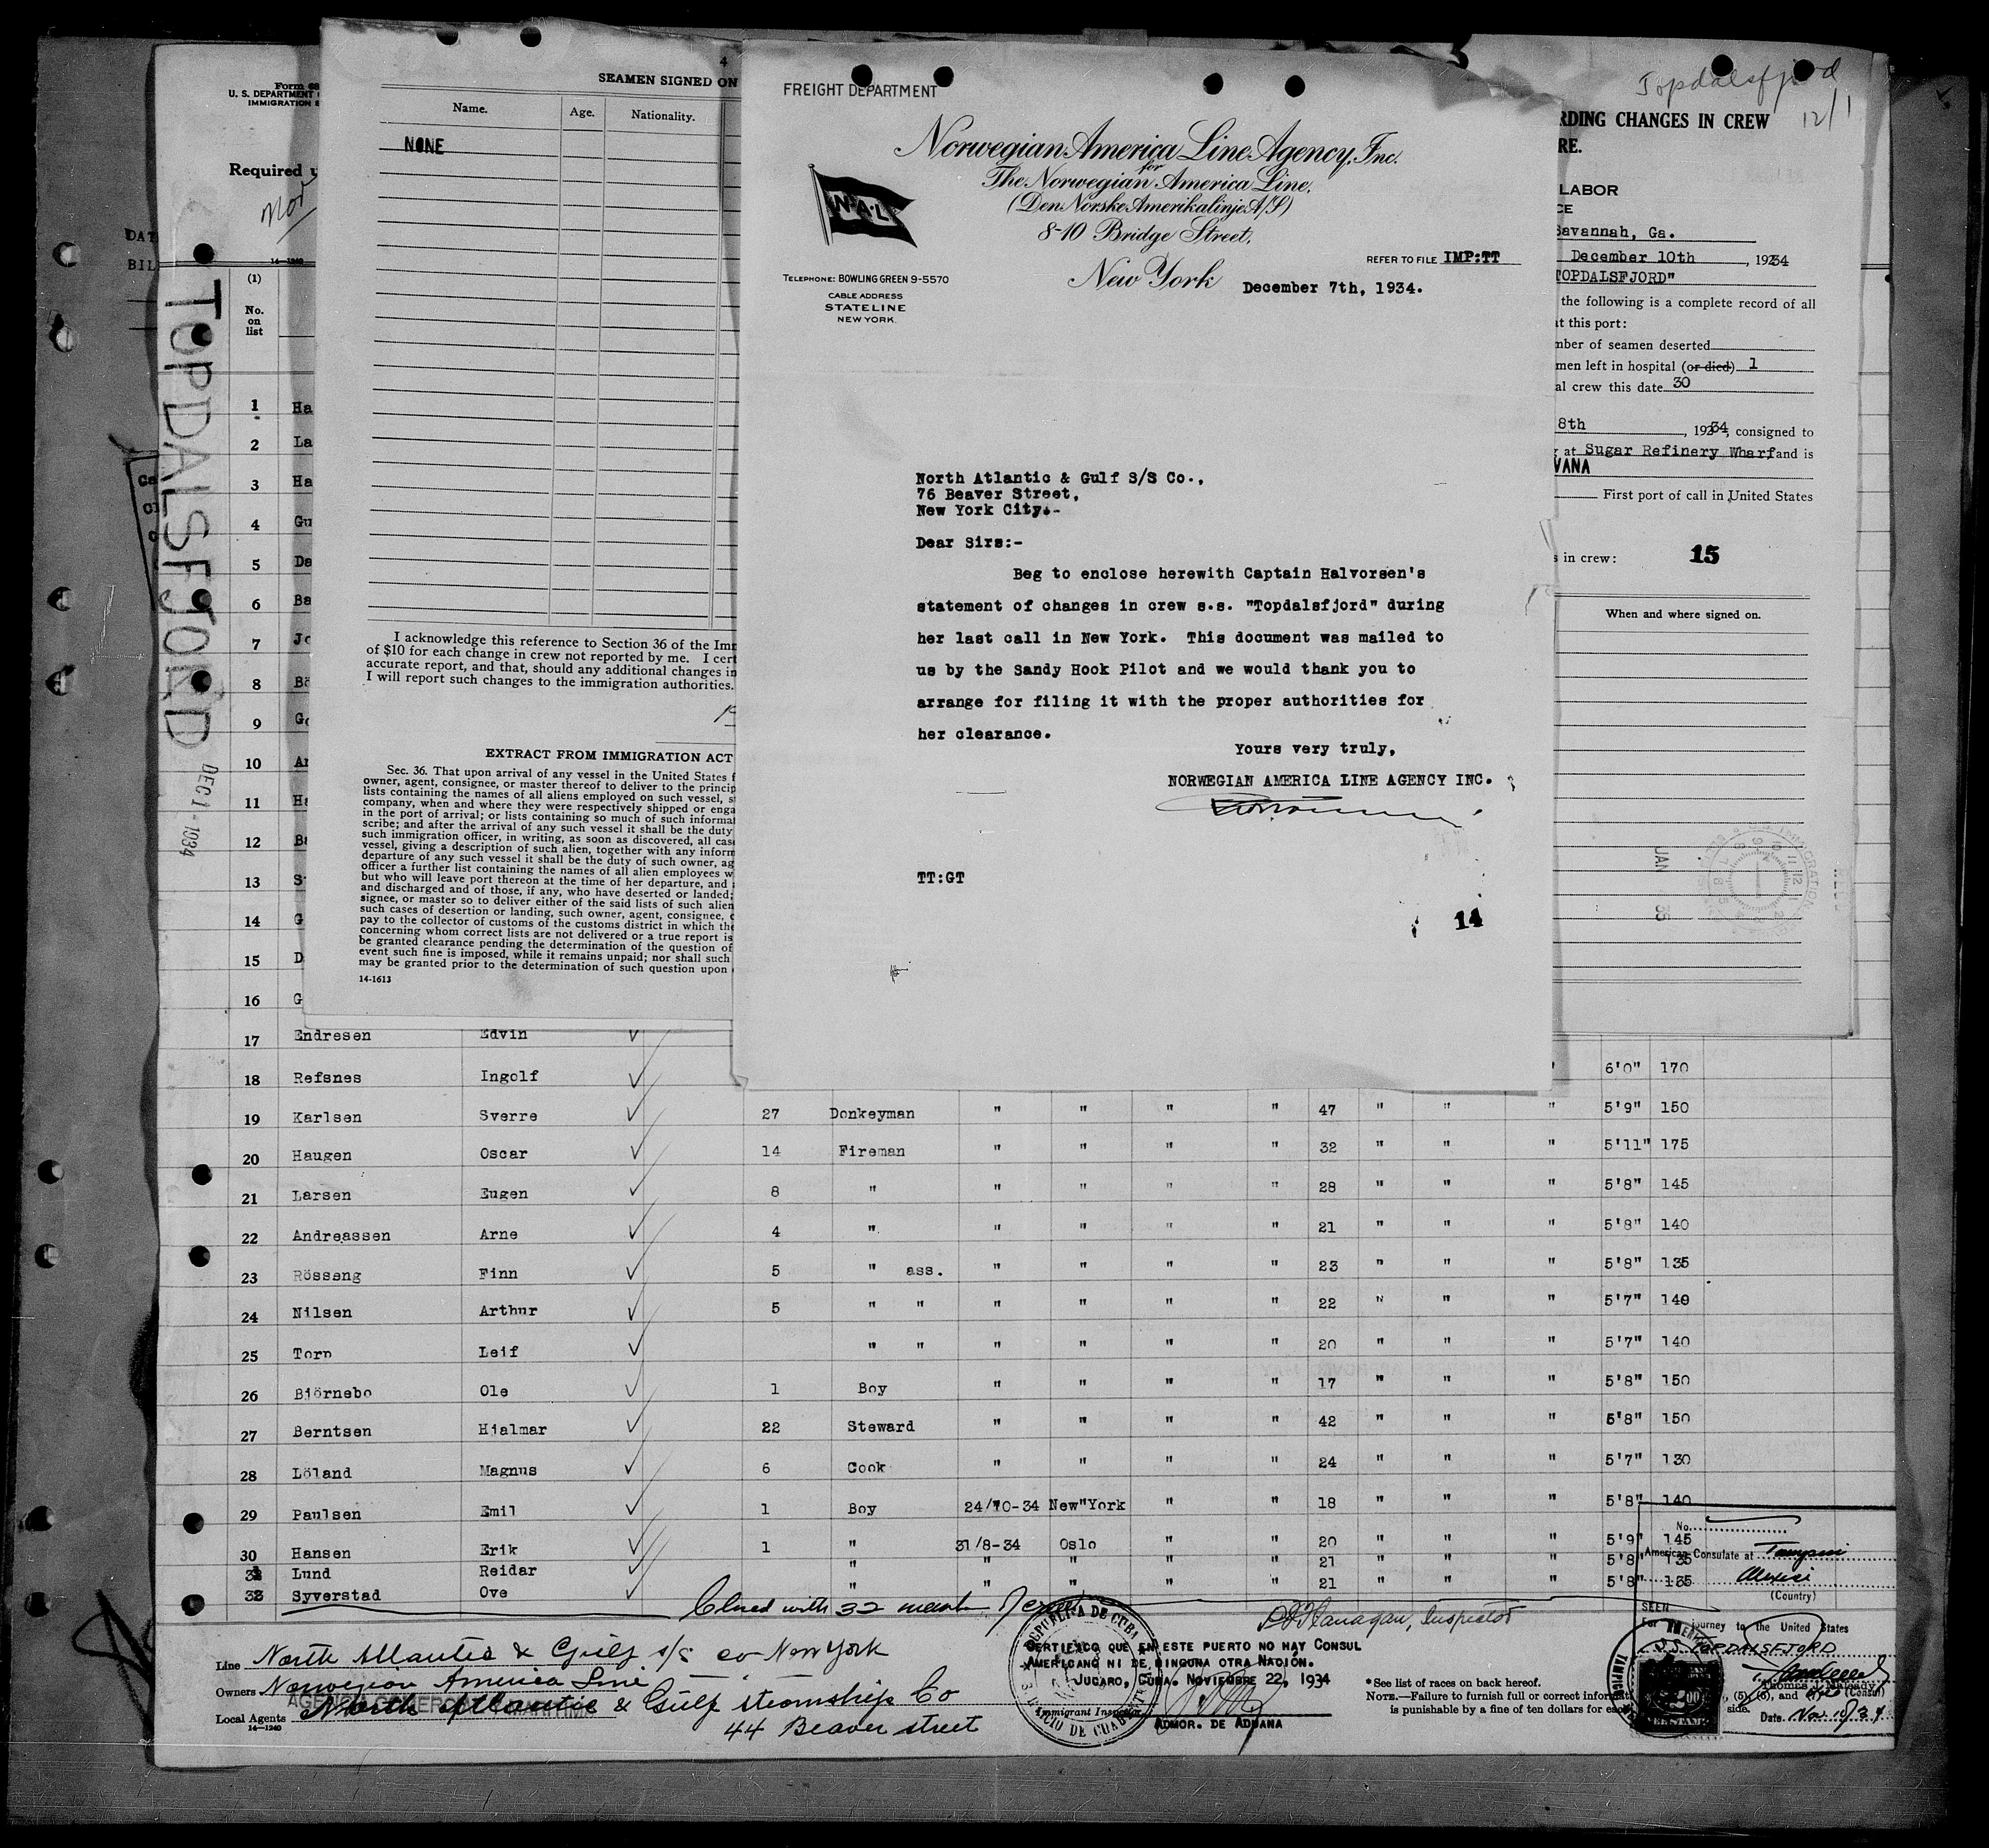 Form 68
U. S. DEPARTMENT
IMMIGRATION
Required
Nor
14-1240
(1)
No.
on
list
TOPDALSFJORD
DEC 1 - 1934
DAT
BIL
1 Ha
2 La
3 Ha
4 Gu
5 Da
6 Ba
7 Jo
8 Bö
9 Go
10 Ar
11 Ha
12
13
14 G
15 D
16 G
4
SEAMEN SIGNED ON
Name. Age. Nationality.
NONE
I acknowledge this reference to Section 36 of the Imm
of $10 for each change in crew not reported by me. I cert
accurate report, and that, should any additional changes in
I will report such changes to the immigration authorities.
EXTRACT FROM IMMIGRATION ACT
Sec. 36. That upon arrival of any vessel in the United States f
owner, agent, consignee, or master thereof to deliver to the princip
lists containing the names of all aliens employed on such vessel, s
company, when and where they were respectively shipped or enga
in the port of arrival; or lists containing so much of such informat
scribe; and after the arrival of any such vessel it shall be the duty
such immigration officer, in writing, as soon as discovered, all cas
vessel, giving a description of such alien, together with any inform
departure of any such vessel it shall be the duty of such owner, ag
officer a further list containing the names of all alien employees w
but who will leave port thereon at the time of her departure, and
and discharged and of those, if any, who have deserted or landed;
signee, or master so to deliver either of the said lists of such alien
such cases of desertion or landing, such owner, agent, consignee, o
pay to the collector of customs of the customs district in which the
concerning whom correct lists are not delivered or a true report is
be granted clearance pending the determination of the question of
event such fine is imposed, while it remains unpaid; nor shall such
may be granted prior to the determination of such question upon
14-1613
FREIGHT DEPARTMENT
Norwegian America Line Agency, Inc.
for
The Norwegian America Line,
(Den Norske Amerikalinje A/S)
8-10 Bridge Street,
New York
N·A·L
REFER TO FILE IMP:TT
TELEPHONE: BOWLING GREEN 9-5570
CABLE ADDRESS
STATELINE
NEW YORK.
December 7th, 1934.
North Atlantic & Gulf S/S Co.,
76 Beaver Street,
New York City.-
Dear Sirs:-
Beg to enclose herewith Captain Halvorsen's
statement of changes in crew s.s. "Topdalsfjord" during
her last call in New York. This document was mailed to
us by the Sandy Hook Pilot and we would thank you to
arrange for filing it with the proper authorities for
her clearance.
Yours very truly,
NORWEGIAN AMERICA LINE AGENCY INC.
TT:GT
14
Topdalsfjord
12/1
RDING CHANGES IN CREW
RE.
LABOR
CE
Savannah, Ga.
December 10th , 19234
TOPDALSFJORD"
the following is a complete record of all
at this port:
mber of seamen deserted
men left in hospital (or died) 1
al crew this date 30
8th , 19234, consigned to
at Sugar Refinery Wharf, and is
VANA
First port of call in United States
s in crew: 15
When and where signed on.
JAN 35
17 Endresen Edvin
18 Refsnes Ingolf " 6'0" 170
19 Karlsen Sverre 27 Donkeyman " " " " 47 " " " 5'9" 150
20 Haugen Oscar 14 Fireman " " " " 32 " " " 5'11" 175
21 Larsen Eugen 8 " " " " " 28 " " " 5'8" 145
22 Andreassen Arne 4 " " " " " 21 " " " 5'8" 140
23 Rösseng Finn 5 " ass. " " " " 23 " " " 5'8" 135
24 Nilsen Arthur 5 " " " " " " 22 " " " 5'7" 140
25 Torp Leif " " " " " " 20 " " " 5'7" 140
26 Björnebo Ole 1 Boy " " " " 17 " " " 5'8" 150
27 Berntsen Hjalmar 22 Steward " " " " 42 " " " 5'8" 150
28 Löland Magnus 6 Cook " " " " 24 " " " 5'7" 130
29 Paulsen Emil 1 Boy 24/10-34 New York " " 18 " " " 5'8" 140
30 Hansen Erik 1 " 31/8-34 Oslo " " 20 " " " 5'9" 145
Lund Reidar " " " " " 21 " " " 5'8" 135
Syverstad Ove " " " " " 21 " " " 5'8" 135
Closed with 32
Flanagan, Inspector
Line North Atlantic & Gulf s/s co New York
Owners Norwegian America Line
Local Agents North Atlantic & Gulf steamship Co
44 Beaver street
14-1240
REPUBLICA DE CUBA
Immigrant Inspector
CERTIFICO QUE EN ESTE PUERTO NO HAY CONSUL
AMERICANO NI DE NINGUNA OTRA NACIÓN.
JUCARO, CUBA. NOVIEMBRE 22, 1934
ADMOR. DE ADUANA
*See list of races on back hereof.
NOTE.—Failure to furnish full or correct informati (5), (6), and (7)
is punishable by a fine of ten dollars for each side.
No.
American Consulate at Tampico
Mexico
(Country)
SEEN
For the journey to the United States
S.S. TOPDALSFJORD
(Consul)
Date Nov 10/34
TAMPICO